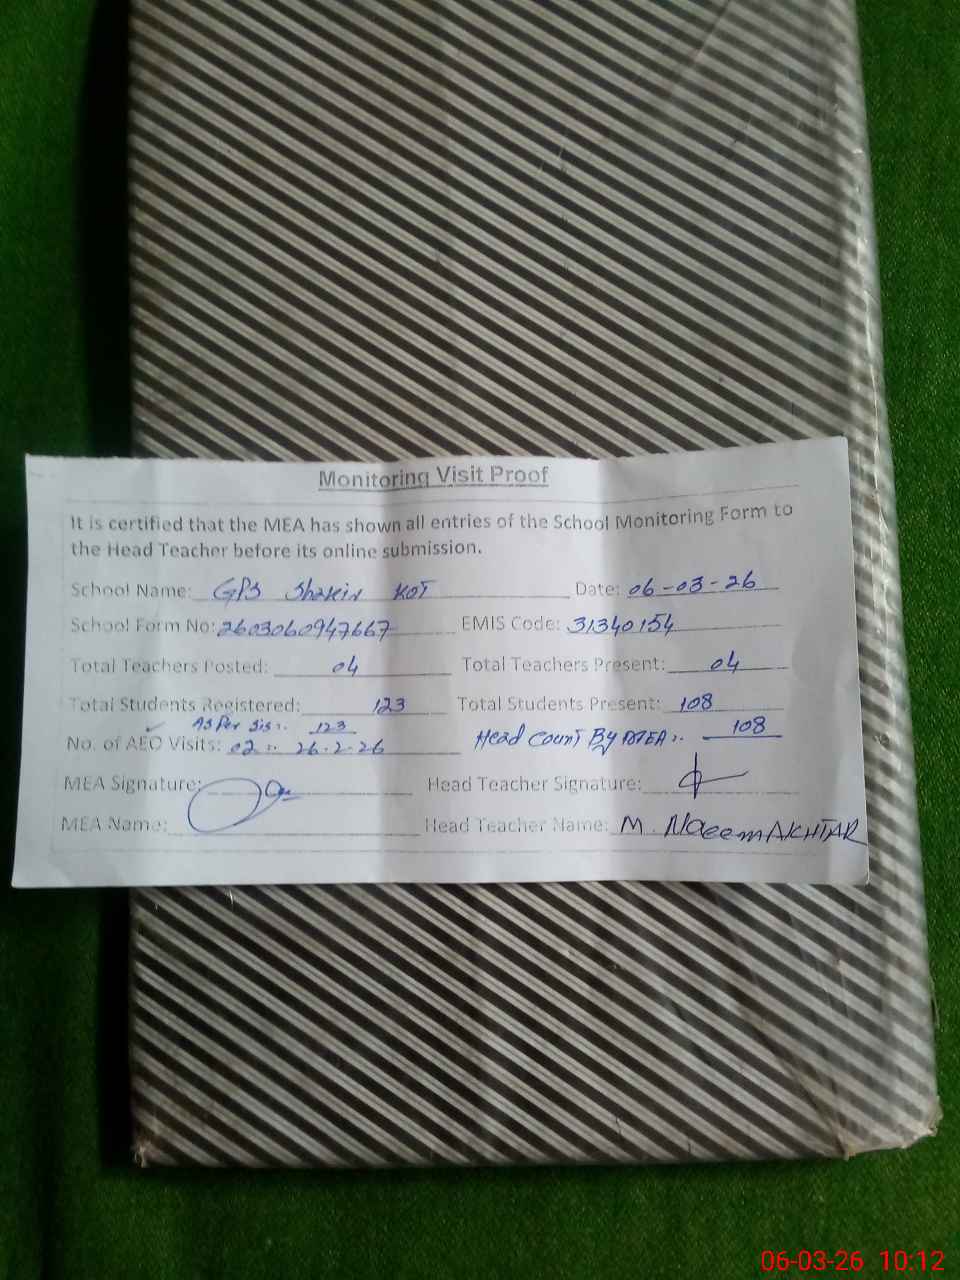 Monitoring Visit Proof
It is certified that the MEA has shown all entries of the School Monitoring Form to
the Head Teacher before its online submission.
School Name: GPS Shakir KOT Date: 06-03-26
School Form No: 2603060947667 EMIS Code: 31340154
Total Teachers Posted: 04 Total Teachers Present: 04
Total Students Registered: 123 Total Students Present: 108
As Per Sis:. 123
No. of AEO Visits: 02 :. 26-2-26 Head Count By MEA:. 108
MEA Signature: Head Teacher Signature:
MEA Name: Head Teacher Name: M. Naeem AKHTAR
06-03-26 10:12